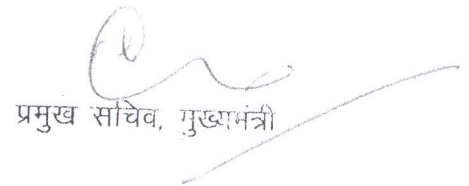 प्रमुख सचिव, मुख्यमंत्री